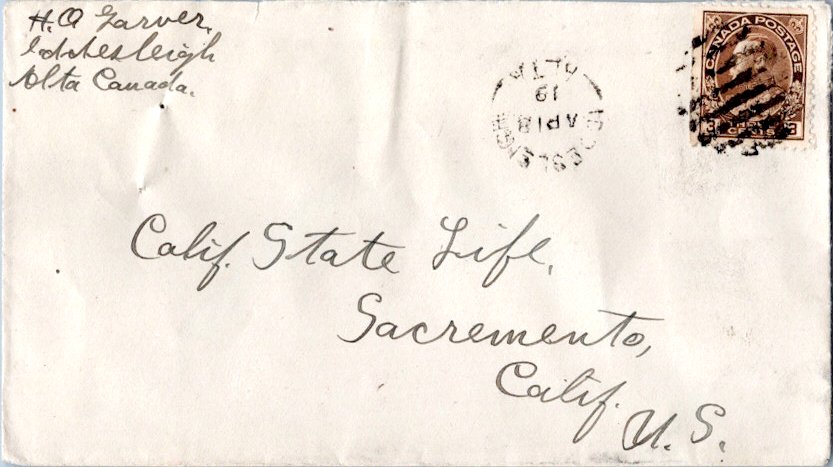 H. A Garver,
Iddesleigh
Alta Canada.
CANADA POSTAGE
3 CENTS 3
IDDESLEIGH
AP 18
19
ALTA
Calif. State Life,
Sacremento,
Calif.
U. S.